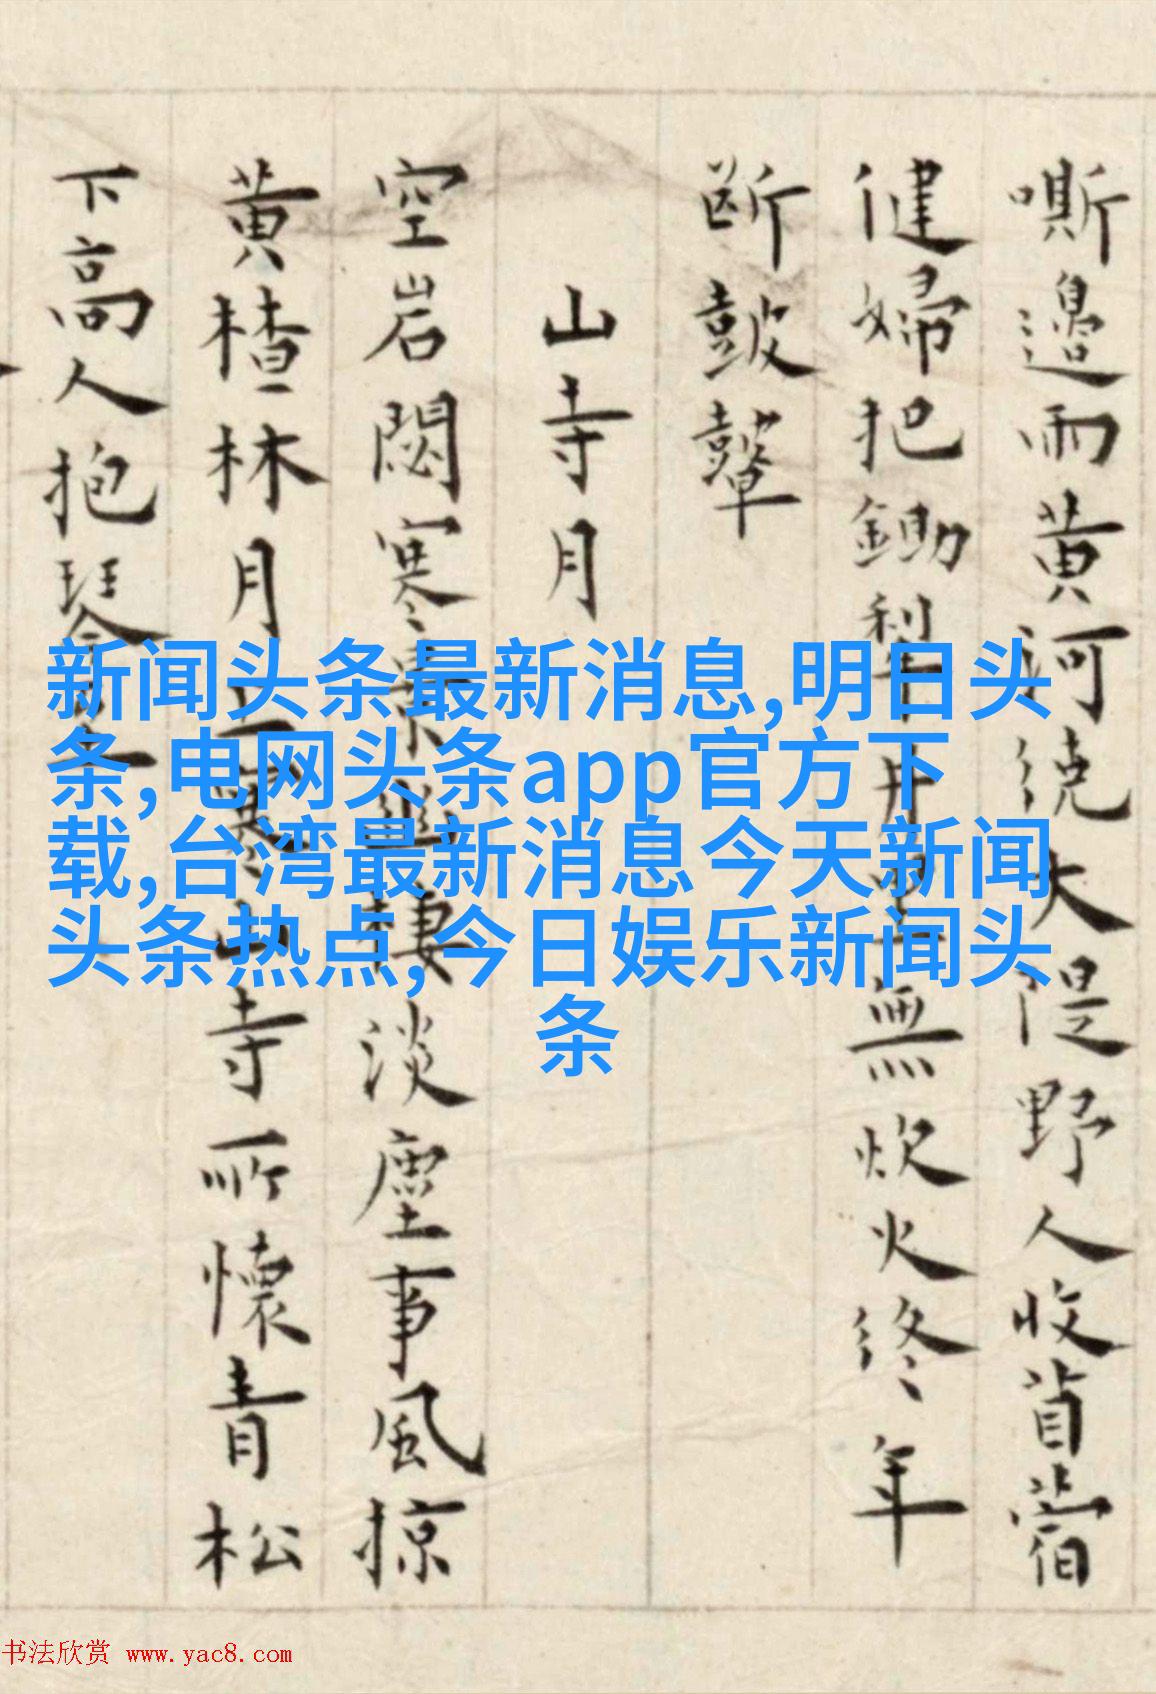 嘶邊雨黄河繞大隄野人收苜蓿
健婦把鋤犁井無炊火終年
斷皷鼙
山寺月
空岩閟寒棲淡塵事風掠
黄樝林月寺所懷青松
下高人抱琴
新闻头条最新消息,明日头
条,电网头条app官方下
载,台湾最新消息今天新闻
头条热点,今日娱乐新闻头
条
书法欣赏 www.yac8.com